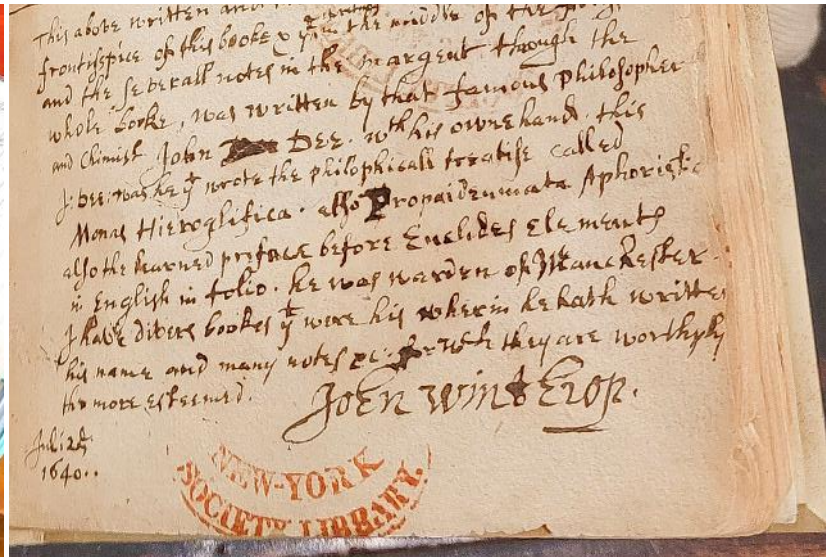 This above written and
frontispice of this booke & yt in the middle of the
and the severall notes in the margent through the
whole booke, was written by that famous philosopher
and Chimist John Dee. wth his owne hand. this
J: Dee: was he yt wrote the philosphicall treatise called
Monas Hieroglifica. also Propaideumata Aphoristic
also the learned preface before Euclides Elements
in English in folio. he was warden of Manchester.
I have divers bookes yt were his wherin he hath written
his name and many notes &c: for wch they are worthyly
the more esteemed.
John Winthrop.
July: 25
1640..
NEW-YORK
SOCIETY LIBRARY.